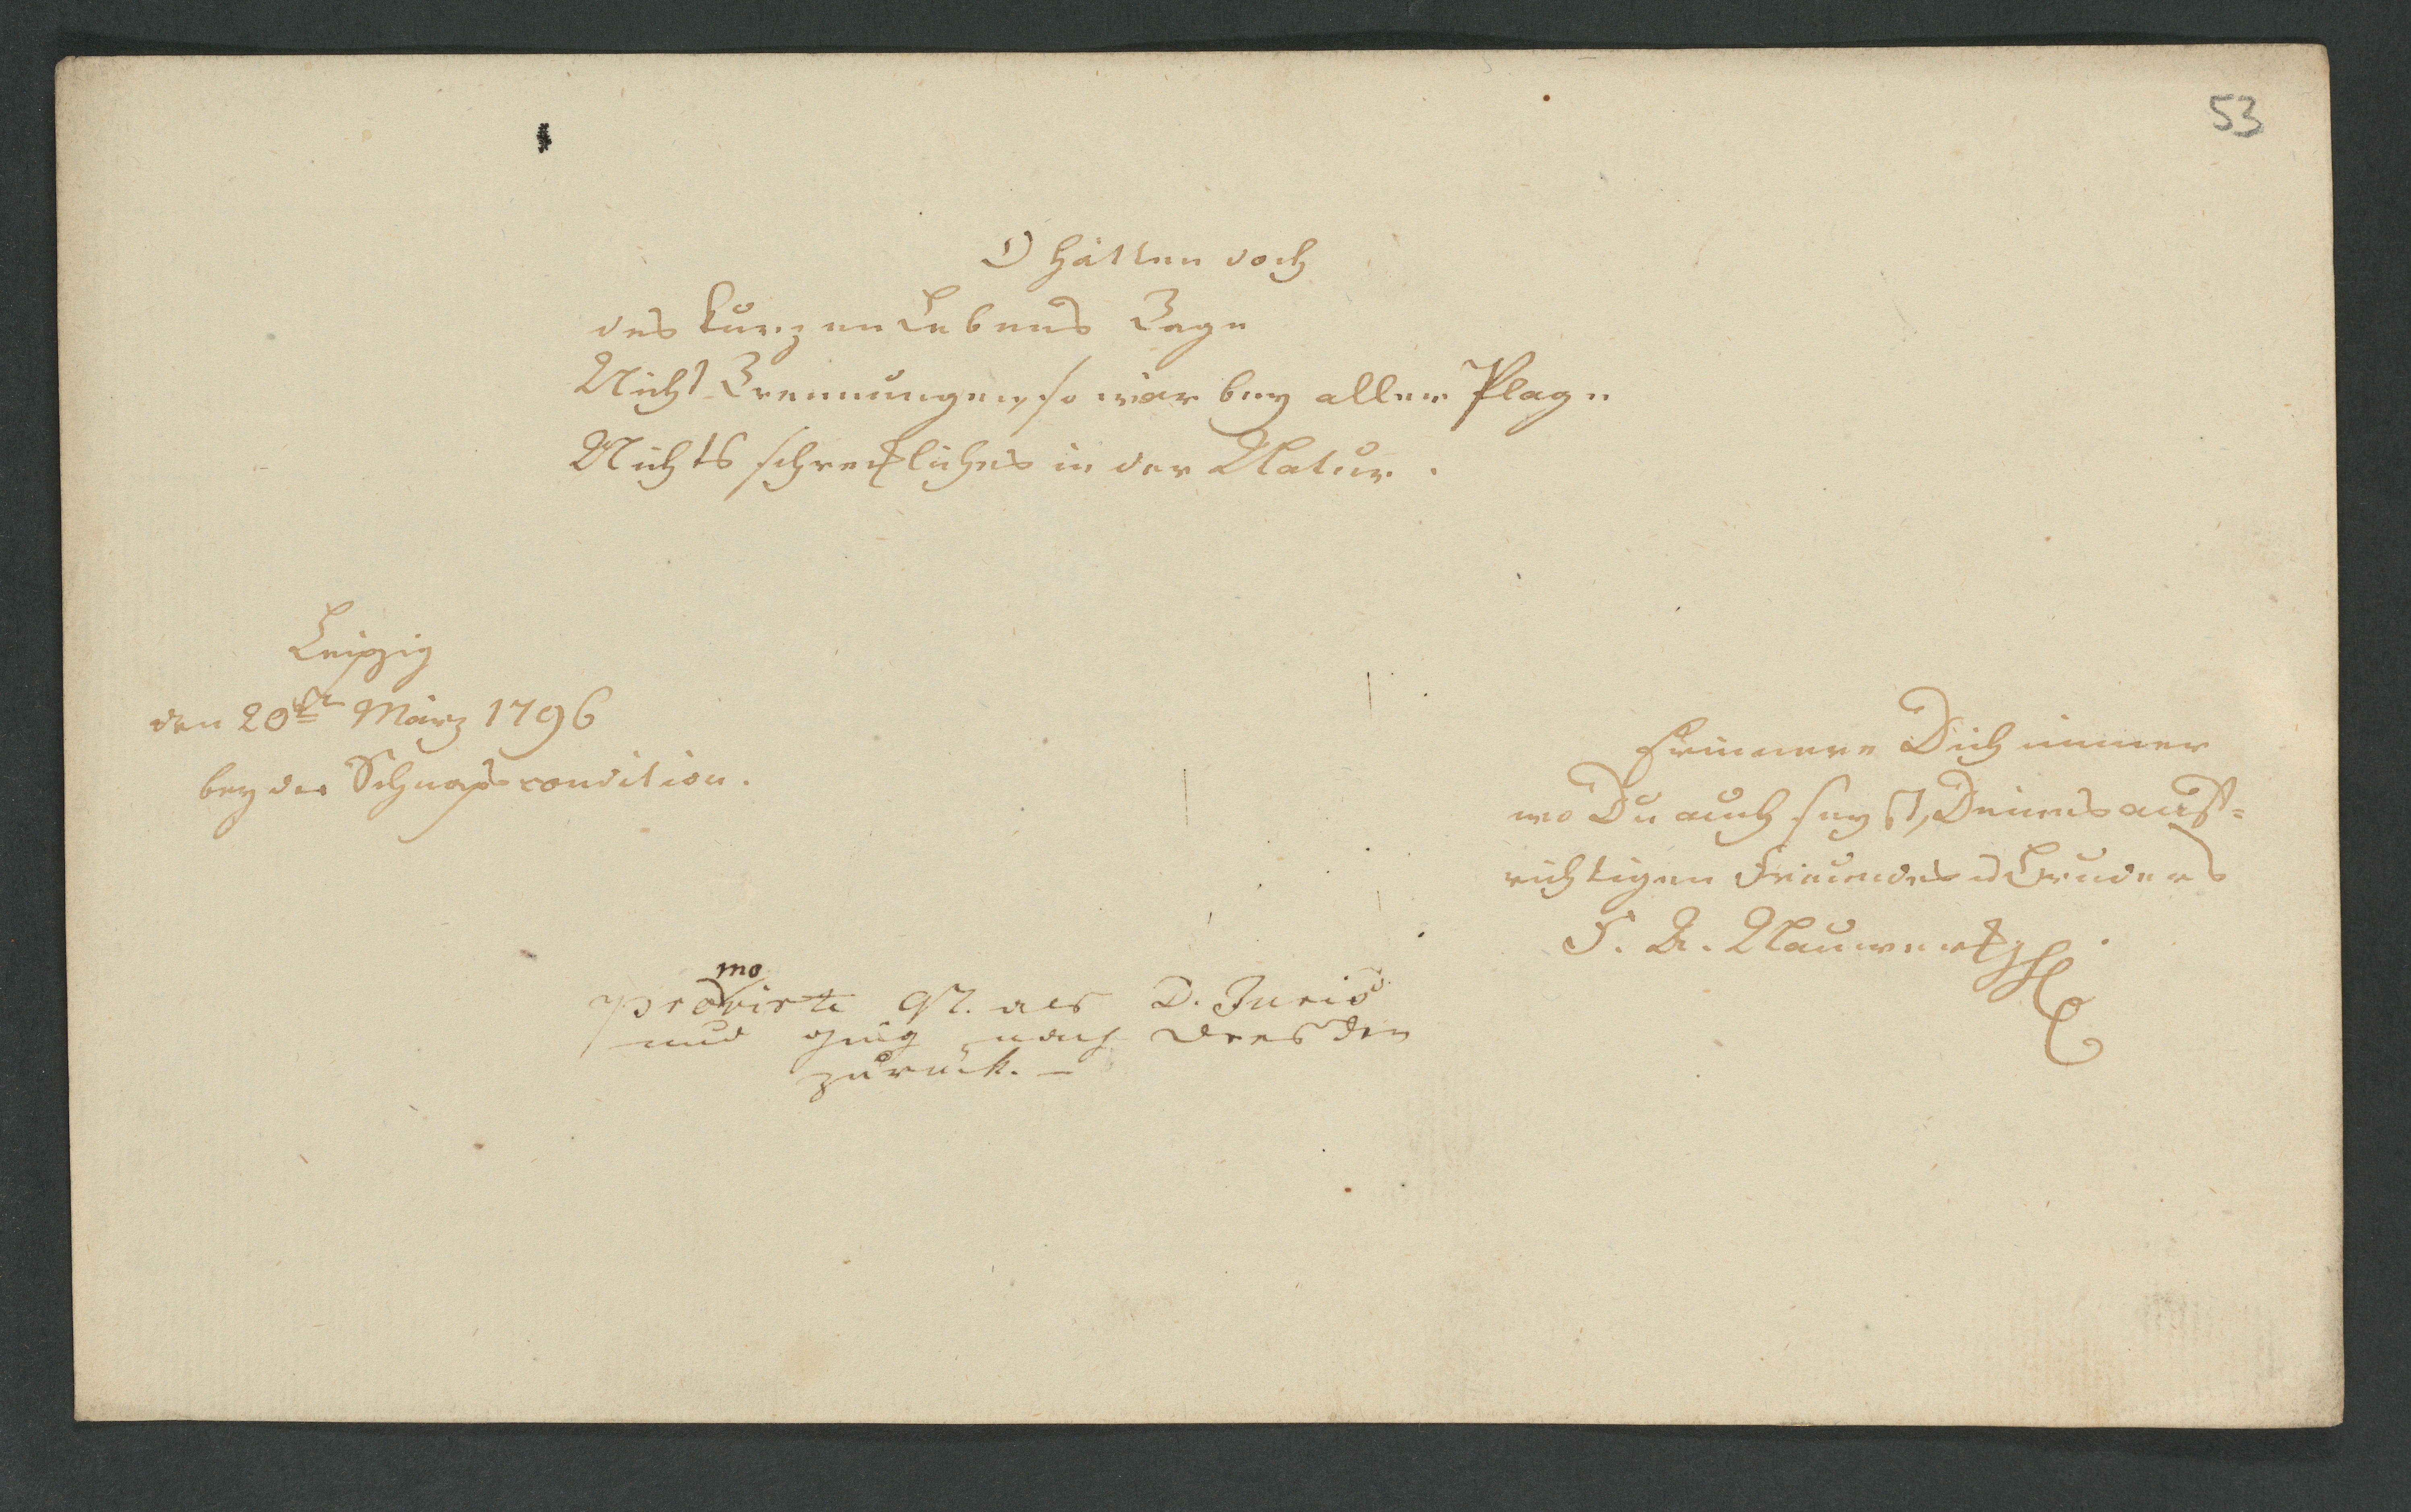 53
O hätten doch
des kurzen Lebens Tage
Nicht Trennungen, so wär bey aller Plage
Nichts schreckliches in der Natur.
Leipzig
den 20st März 1796
bey der Schnapscondition.
Erinnere Dich immer
wo Du auch seyst, Deines auf=
richtigen Freundes u Bruders
F. A. Nauwerck
promovirte 97. als D. Juris
und ging nach Dresden
zurück. –